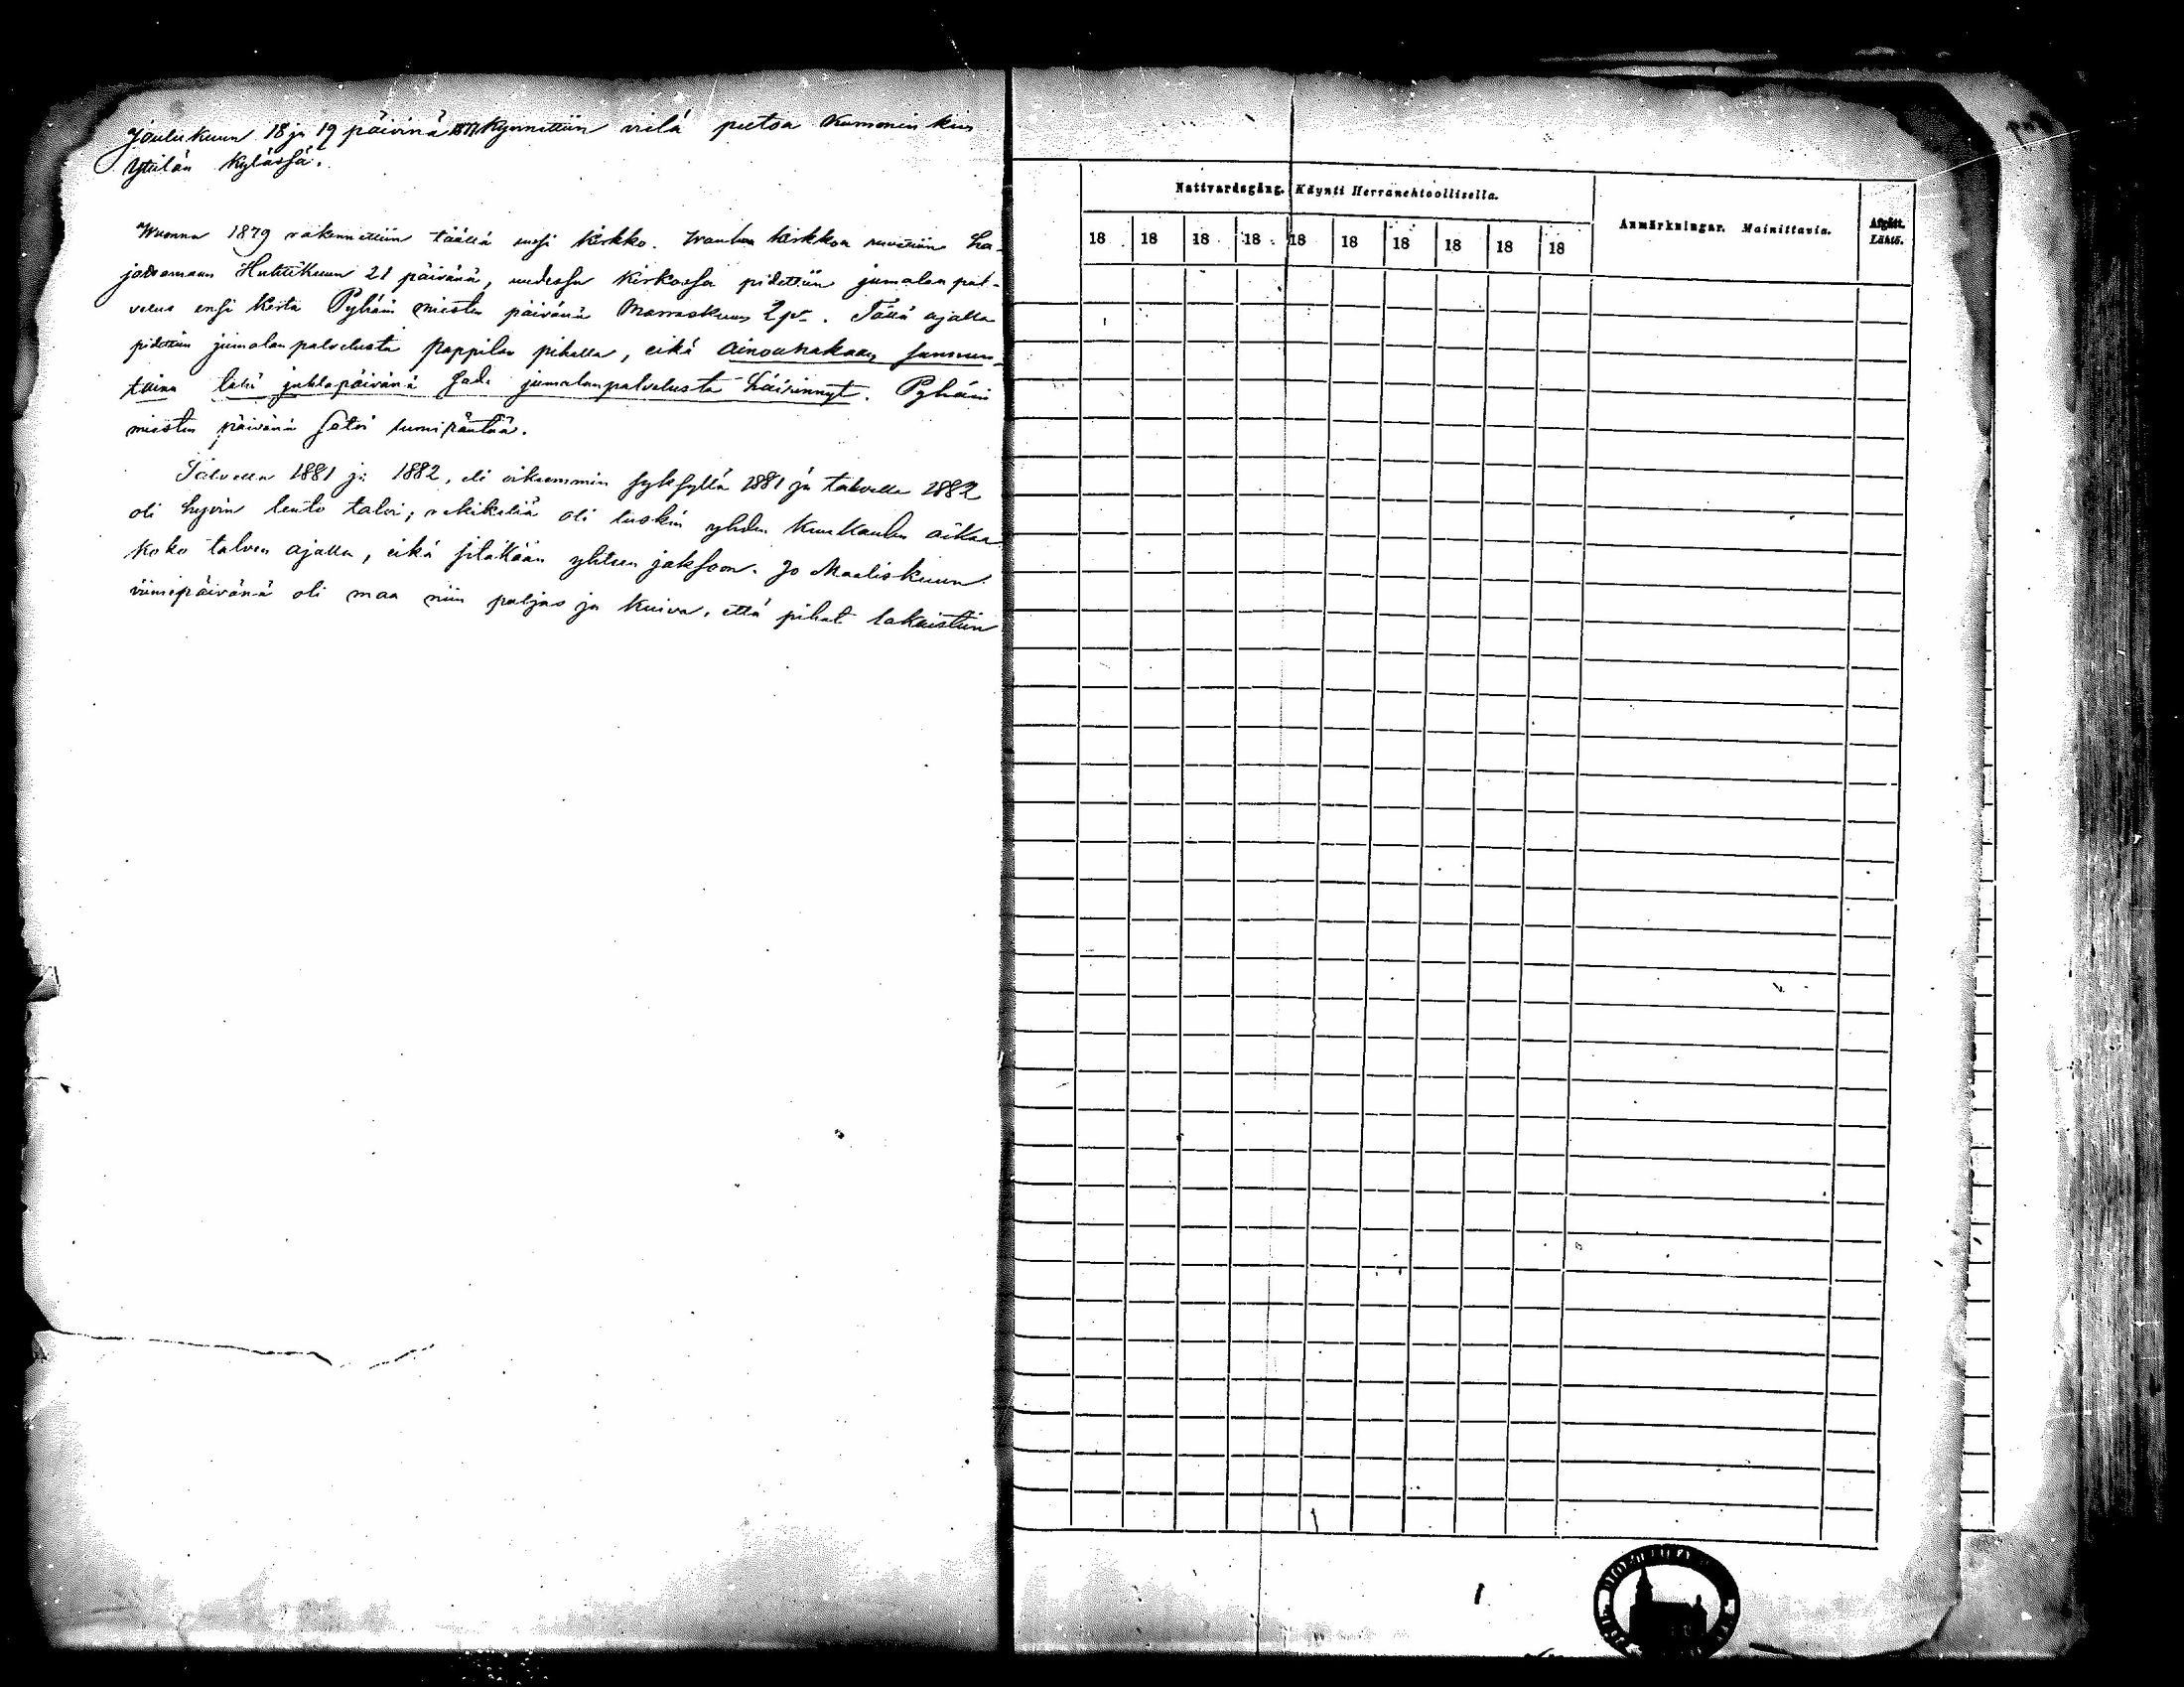 Joulukuun 18 ja 19 päivinä 1877 Kynnettiin vielä peltoa
Yttilän Kylässä.
Wuonna 1879 rakennettiin täällä uusi kirkko. Wanhaa kirkkoa ruvettiin ha-
joittamaan Huhtikuun 21 päivänä, uudessa kirkossa pidettiin jumalan pal-
velus ensi kerta Pyhäin miesten päivänä Marraskuun 2 p. Tällä ajalla
pidettiin jumalan palvelusta Pappilan pihalla, eikä ainoanakaan sunnun-
taina tahi juhlapäivänä sade jumalanpalvelusta häirinnyt. Pyhäin
miesten päivänä satoi lumiräntää.
Talvella 1881 ja 1882, eli oikeammin syksyllä 1881 ja talvella 1882
oli hyvin leuto talvi; rekikeliä oli tuskin yhden kuukauden aikaa
koko talven ajalla, eikä sitäkään yhteen jaksoon. Jo Maaliskuun
viimispäivänä oli maa niin paljas ja kuiva, että pihat lakaistiin
Nattvardsgång. Käynti Herranehtoollisella.
Anmärkningar. Mainittavia.
Afgått.
Lähtö.
18 18 18 18 18 18 18 18 18 18